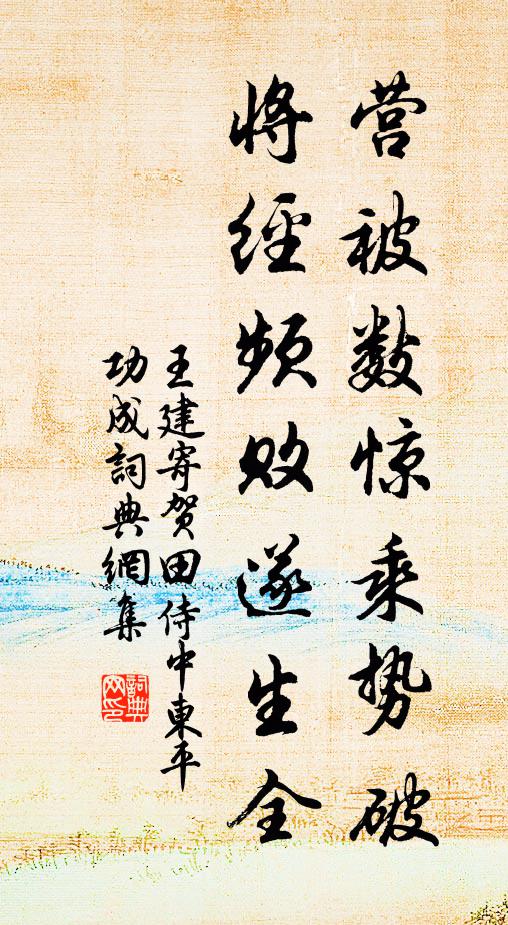 营被数惊乘势破
将经频败遂生全
王建寄贺田侍中東平
功成詞典網集
詞典
网印